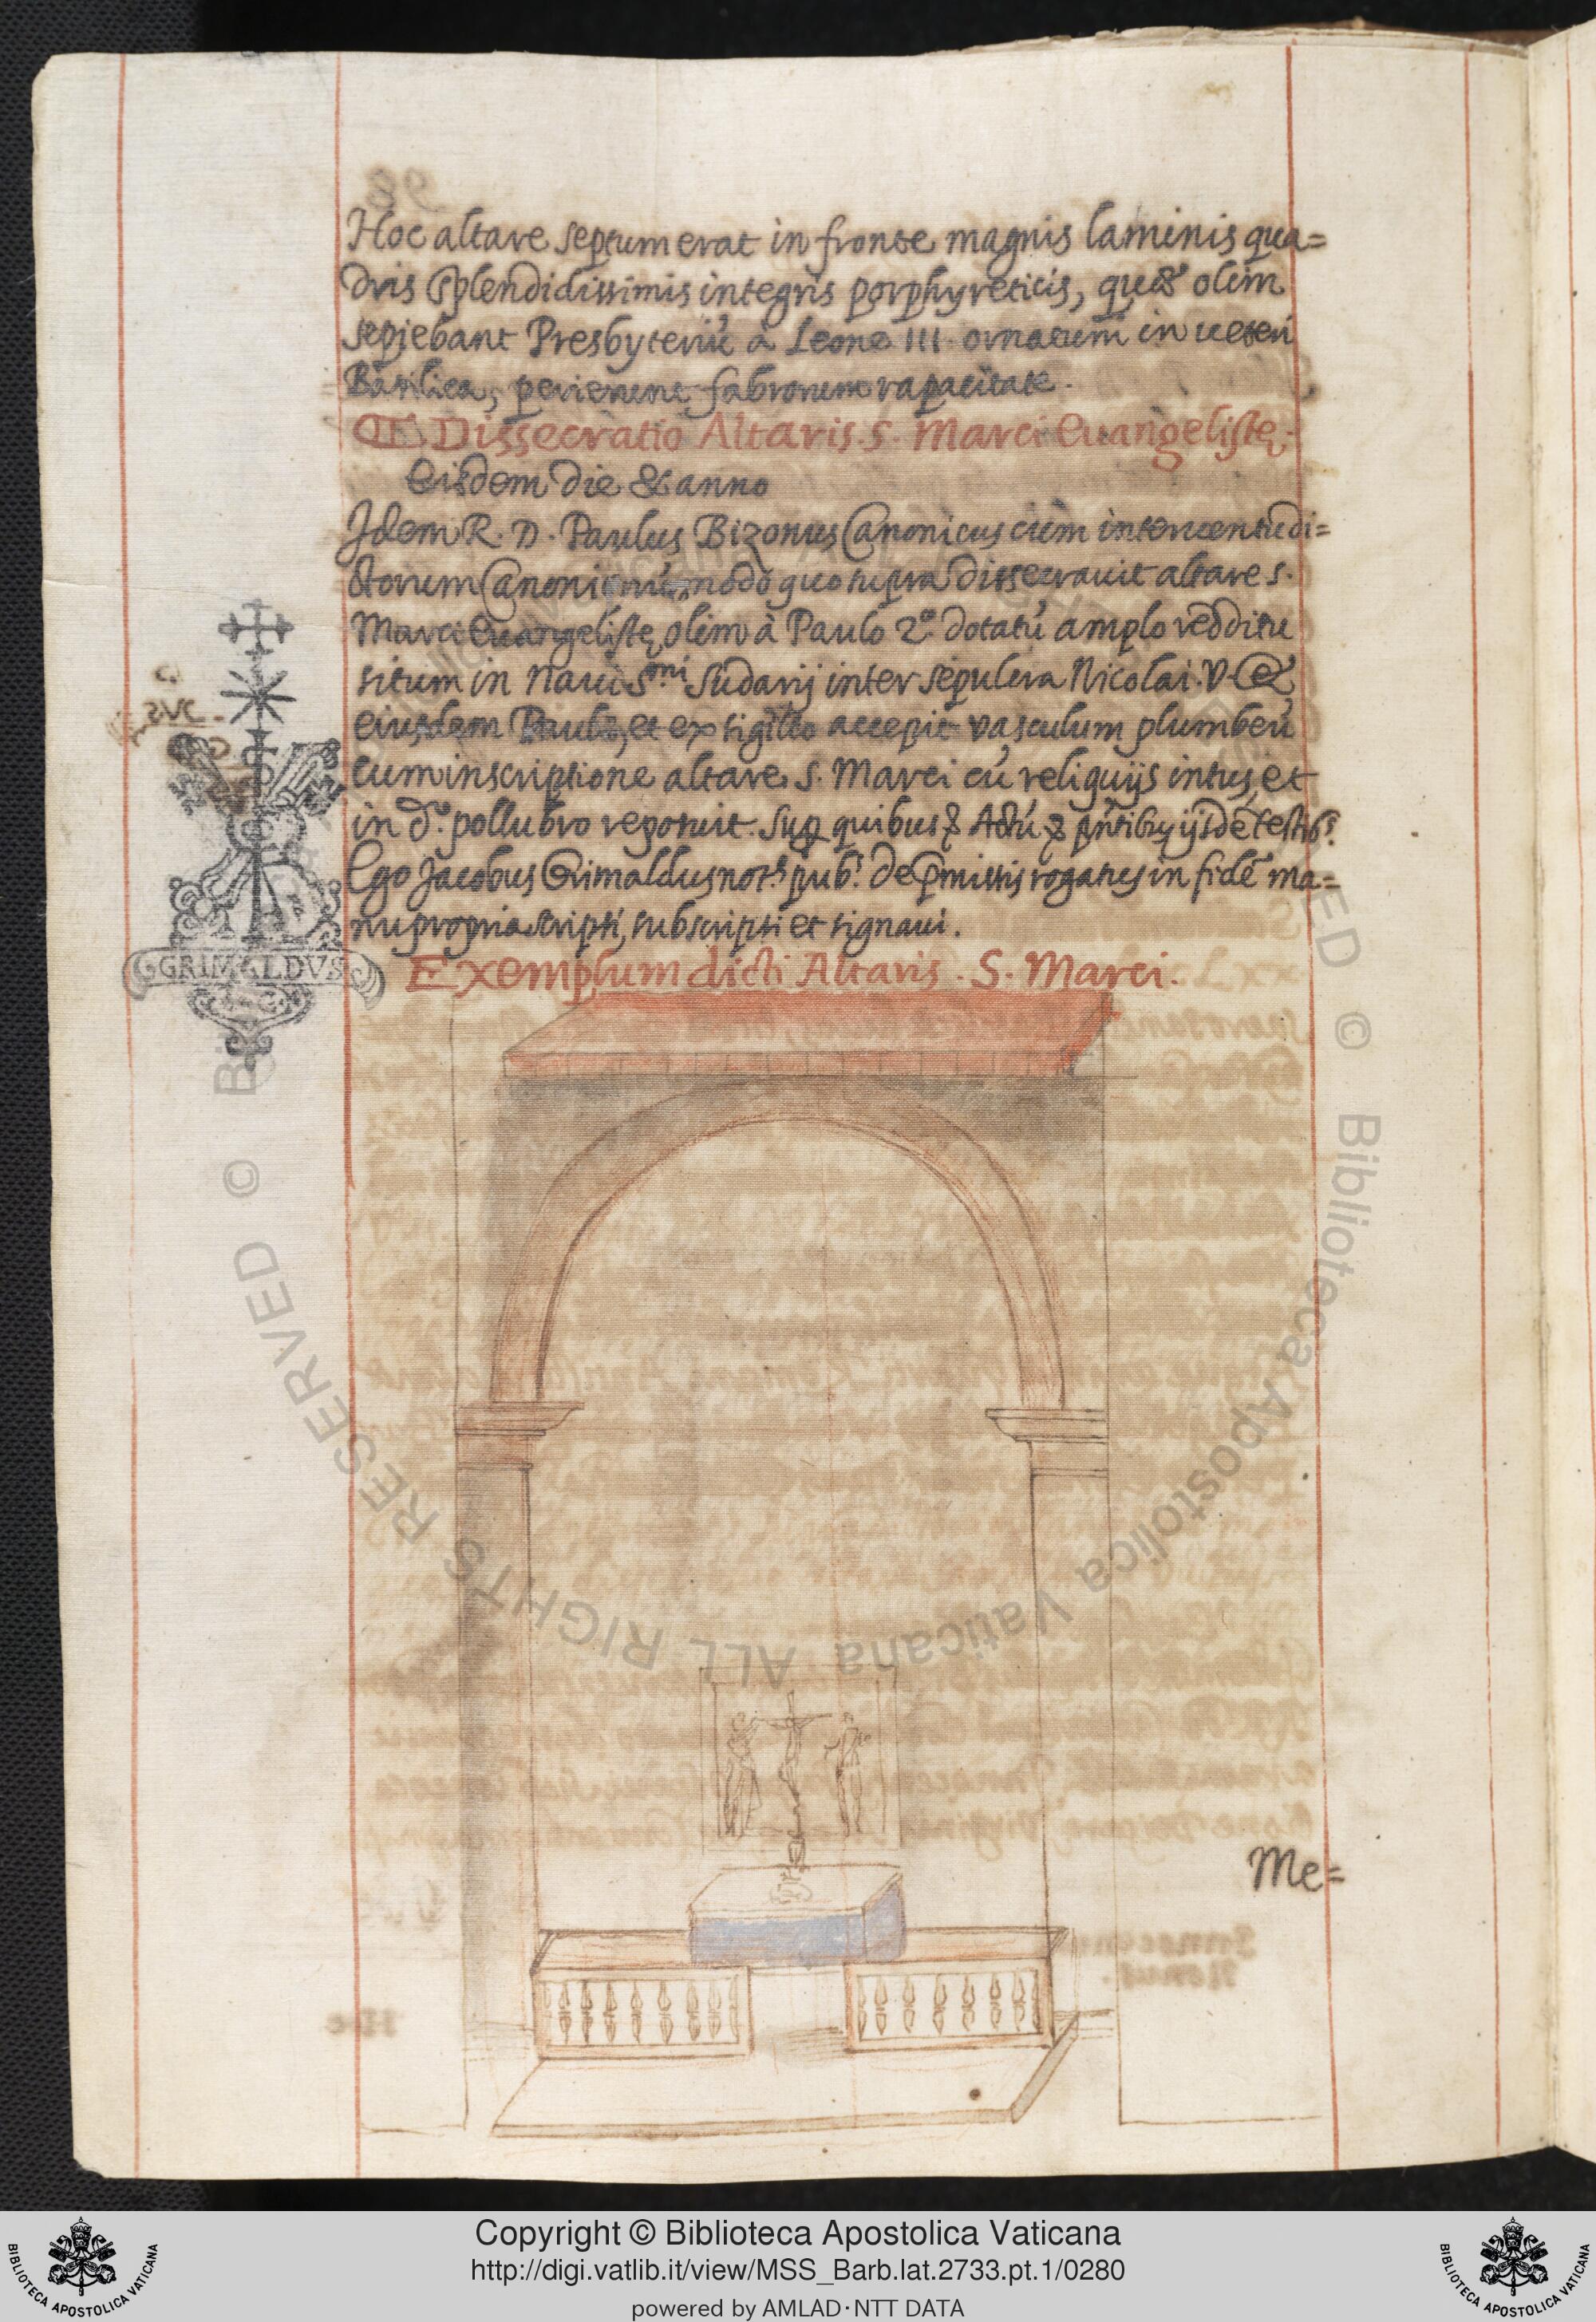 Hoc altare septum erat in fronte magnis laminis qua=
dris splendidissimis integris porphyreticis, quę olim
sepiebant Presbyteriū à Leone III ornatum in ueteri
Basilica, perierunt fabrorum rapacitate.
Dissecratio Altaris. S. Marci Euangelistę.
Eisdem die & anno
Idem R. D. Paulus Bizonus Canonicus cùm interuentu di=
ctorum Canonicorum modo quo supra dissecrauit altare s.
Marci Euangelistę, olim à Paulo 2º dotatū amplo redditu
situm in naui S.mi Sudarij inter sepulcra Nicolai. V. &
eiusdem Pauli, et ex sigillo accepit vasculum plumbeū
cum inscriptione altare s. Marci cū reliquijs intus, et
in d.º pollubro reposuit. Sup quibus &. Actū & pn̄tibus ijsdē testib.s
Ego Jacobus Grimaldus not.s pub.s de p̄missis rogatus in fidē ma=
nu propria scripsi, subscripsi et signaui.
GRIMALDVS
Exemplum dicti Altaris. S. Marci.
Me=
Copyright © Biblioteca Apostolica Vaticana
http://digi.vatlib.it/view/MSS_Barb.lat.2733.pt.1/0280
powered by AMLAD·NTT DATA
BIBLIOTECA APOSTOLICA VATICANA
BIBLIOTECA APOSTOLICA VATICANA
Biblioteca Apostolica Vaticana ALL RIGHTS RESERVED ©